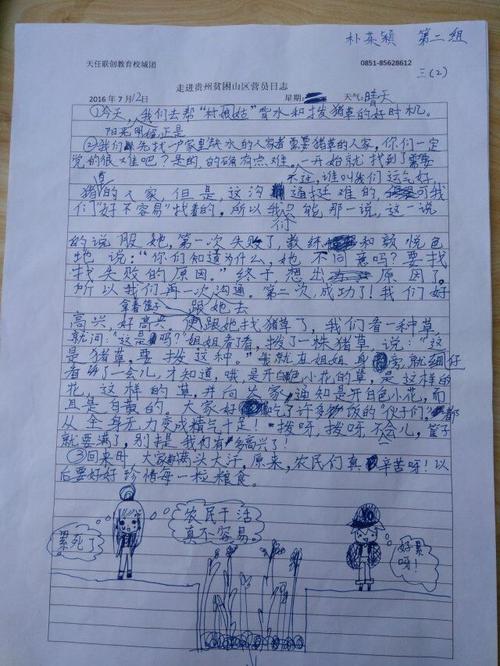 朴英颖 第二组
天任联创教育校城团
0851-85628612
三(2)
走进贵州贫困山区营员日志
2016年7月12日 星期: 天气:晴天
①今天,我们去帮“村姑”背水和拔猪草的好时机。
阳光明媚,正是
②我们先找一户家里缺水的人家或者需要猪草的人家,你们一定
觉的很难吧?是的,的确有点难。一开始就找到了需要
不过,谁叫我们运气好
猪的人家,但是这沟通挺难的,可我
们“好不容易”找着的,所以我只能,那一说,这一说
们
的说服她,第一次失败了,教练和颜悦色
地说:“你们知道为什么,她不同意吗?要找
找失败的原因。”终于想出原因了。
所以我们再一次沟通。第二次,成功了!我们好
拿着篮子 跟她去
高兴,好高兴。便跟她找猪草了,我们看一种草,
就问:“这是吗?”姐姐看了看,拔了一株猪草,说:“这
是猪草,要拔这种。”我就在姐姐身旁,就细仔
看了一会儿,才知道哦,是开白色小花的草,是这样的
花,这样的草,并向大家通知是开白色小花,而
且是白黄的。大家好吃了许多饭的“伙子们”都
从全身无力变成横气十足!拔呀,拔呀,不会儿,篮子
就要满了,别提我们有多高兴了!
③回来时,大家都满头大汗,原来,农民们真辛苦呀!以
后要好好珍惜每一粒粮食。
累死了
农民干活
真不容易
好累
呀!